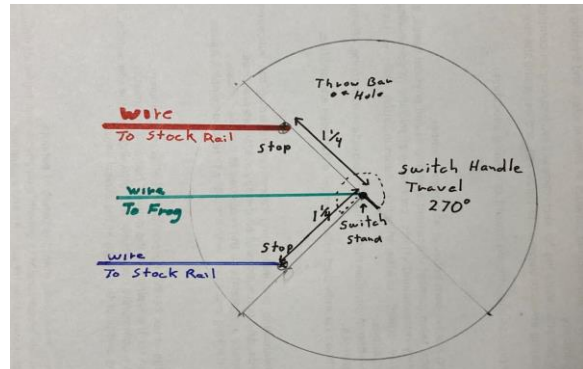 Throw Bar
Hole
Wire
To Stock Rail
Stop
1 1/4
Switch Handle
Travel
270°
Wire
To Frog
1 1/4
Switch
Stand
Stop
Wire
To Stock Rail